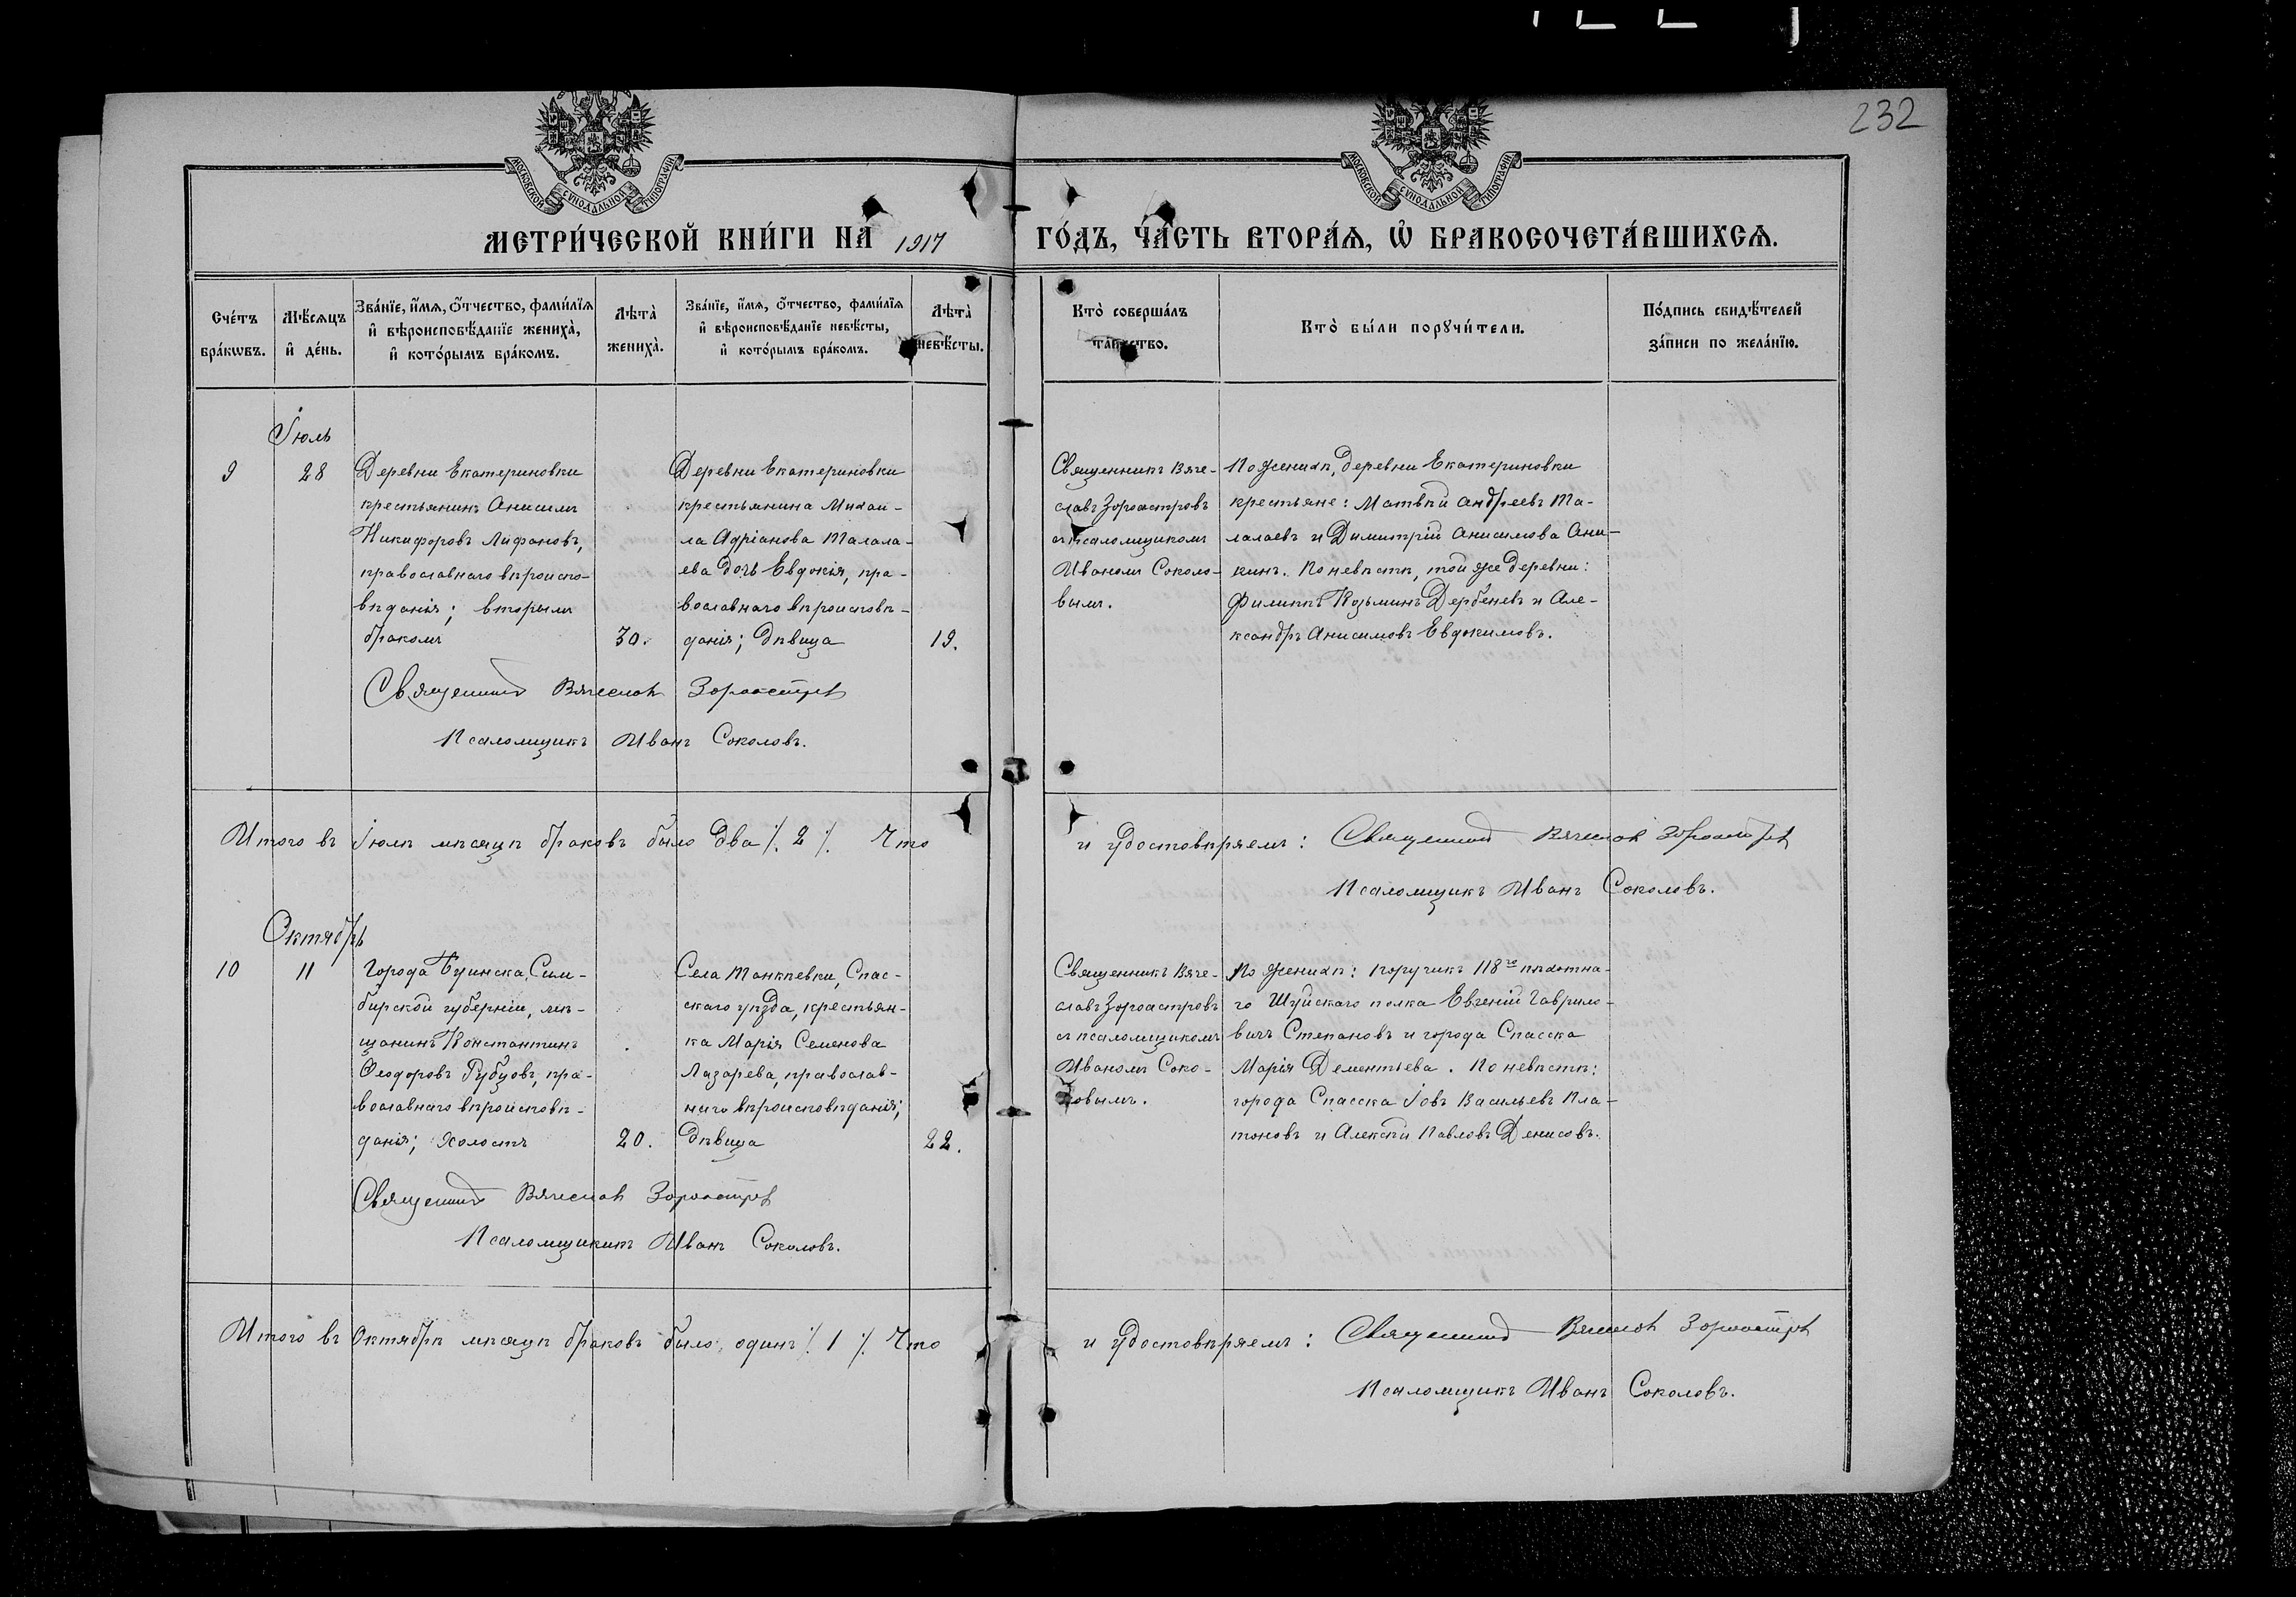 232
МОСКОВСКОЙ СѴНОДАЛЬНОЙ ТИПОГРАФІИ
МОСКОВСКОЙ СѴНОДАЛЬНОЙ ТИПОГРАФІИ
МЕТРИ́ЧЕСКОЙ КНИ́ГИ НА 1917 ГО́ДЪ, ЧА́СТЬ ВТОРА́Я, Ѡ҆ БРАКОСОЧЕТА́ВШИХСЯ.
Сче́тъ бра́кѡвъ.
Мѣ́сяцъ и҆ де́нь.
Зва́нїе, и҆́мя, ѻ҆́тчество, фами́лїя
и҆ вѣроисповѣ́данїе жениха̀,
и҆ кото́рымъ бра́комъ.
Лѣта̀ жениха̀.
Зва́нїе, и҆́мя, ѻ҆́тчество, фами́лїя
и҆ вѣроисповѣ́данїе невѣ́сты,
и҆ кото́рымъ бра́комъ.
Лѣта̀ невѣ́сты.
Кто̀ соверша́лъ
та́инство.
Кто̀ бы́ли порꙋчи́тели.
По́дпись свидѣ́телей
за́писи по жела́нїю.
Іюль
9
28
Деревни Екатериновки
крестьянинъ Анисимъ
Никифоровъ Лифановъ,
православнаго вѣроиспо-
вѣданія; вторымъ
бракомъ
30.
Деревни Екатериновки
крестьянина Михаи-
ла Адріанова Талала-
ева дочь Евдокія, пра-
вославнаго вѣроисповѣ-
данія; дѣвица
19.
Священникъ Вяче-
славъ Зороастровъ
съ псаломщикомъ
Иваномъ Соколо-
вымъ.
По женихѣ, деревни Екатериновки
крестьяне: Матвѣй Андреевъ Та-
лалаевъ и Димитрій Анисимова Ани-
кинъ. По невѣстѣ, той же деревни:
Филиппъ Козьминъ Дербеневъ и Але-
ксандръ Анисимовъ Евдокимовъ.
Священникъ Вячеславъ Зороастровъ
Псаломщикъ Иванъ Соколовъ.
Итого въ Іюлѣ мѣсяцѣ браковъ было два ⁒ 2 ⁒ Что и удостовѣряемъ: Священникъ Вячеславъ Зороастровъ
Псаломщикъ Иванъ Соколовъ.
Октябрь
10
11
Города Буинска, Сим-
бирской губерніи, мѣ-
щанинъ Константинъ
Ѳеодоровъ Рубцовъ, пра-
вославнаго вѣроисповѣ-
данія; холостъ
20.
Села Танкѣевки, Спас-
скаго уѣзда, крестьян-
ка Марія Семенова
Лазарева, православ-
наго вѣроисповѣданія;
дѣвица
22.
Священникъ Вяче-
славъ Зороастровъ
съ псаломщикомъ
Иваномъ Соко-
ловымъ.
По женихѣ: поручикъ 118го пѣхотна-
го Шуйскаго полка Евгеній Гаврило-
вичъ Степановъ и города Спасска
Марія Дементьева. По невѣстѣ:
города Спасска Іовъ Васильевъ Пла-
тоновъ и Алексѣй Павловъ Денисовъ.
Священникъ Вячеславъ Зороастровъ
Псаломщикъ Иванъ Соколовъ.
Итого въ Октябрѣ мѣсяцѣ браковъ было, одинъ ⁒ 1 ⁒ Что и удостовѣряемъ: Священникъ Вячеславъ Зороастровъ
Псаломщикъ Иванъ Соколовъ.